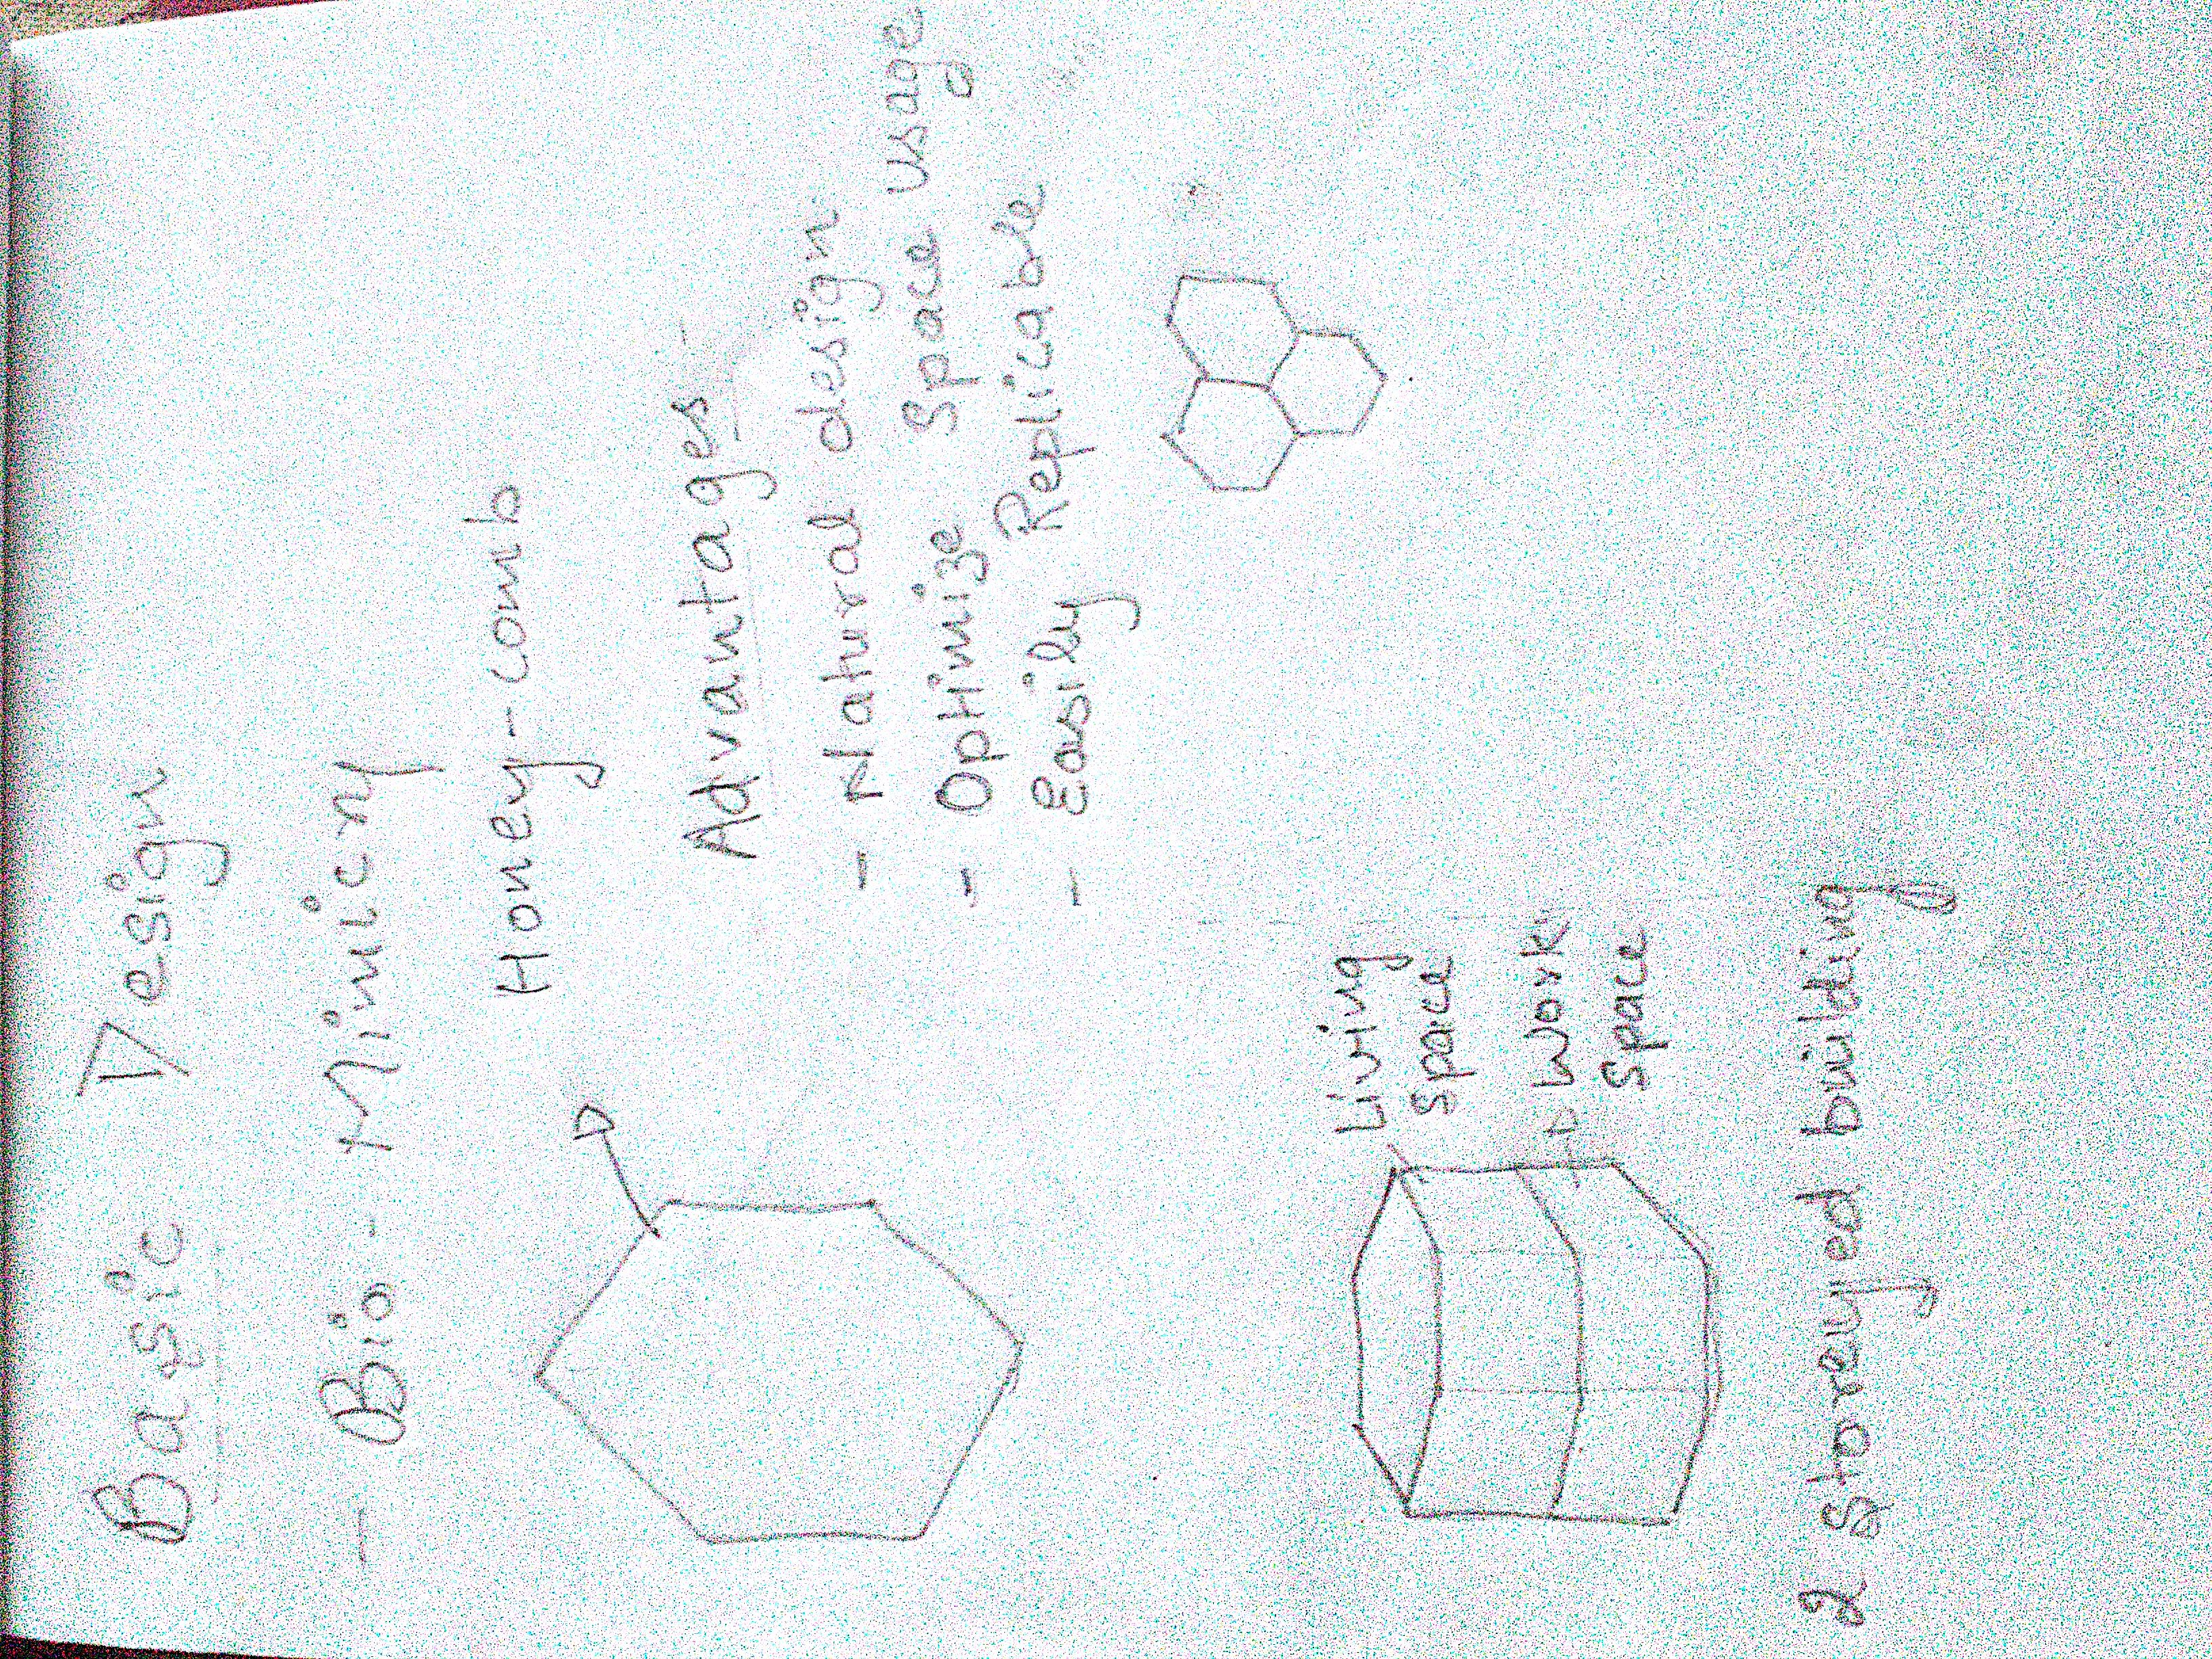 Basic Design
- Bio - Mimicry
Honey-comb
Advantages
- Natural design
- Optimize space usage
- Easily Replicable
Living
space
Work
space
2 storeyed building